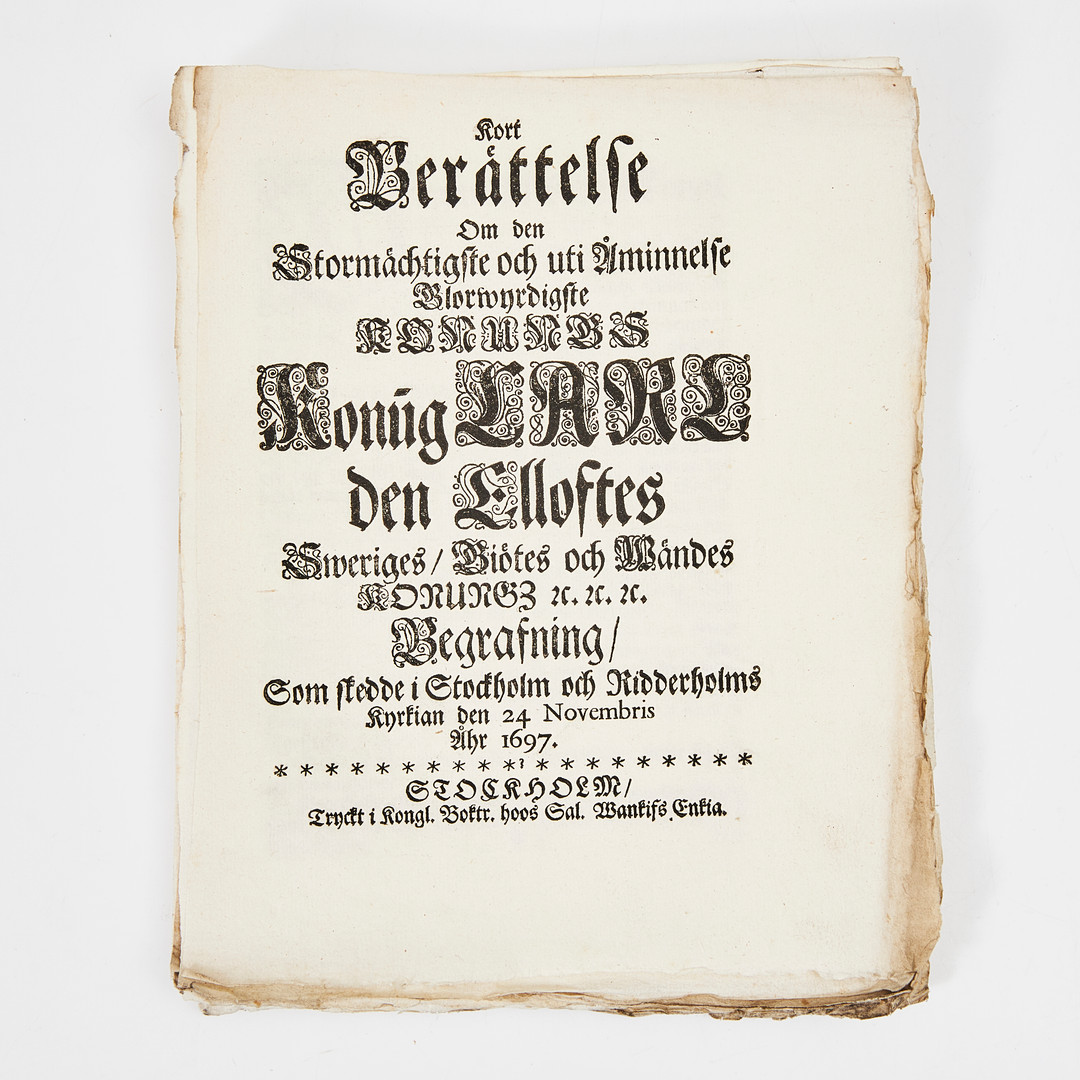 Kort
Berättelse
Om den
Stormächtigste och uti Åminnelse
Glorwyrdigste
KONUNGS
Konūg CARL
den Elloftes
Sweriges/ Giötes och Wändes
KONUNGZ ꝛc. ꝛc. ꝛc.
Begrafning/
Som skedde i Stockholm och Ridderholms
Kyrkian den 24 Novembris
Åhr 1697.
* * * * * * * * * * * * * * * * * * *
STOCKHOLM/
Tryckt i Kongl. Boktr. hoos Sal. Wankifs Enkia.